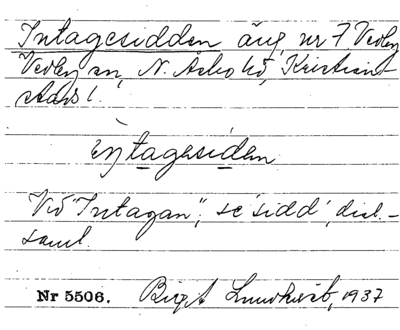 Intagesidden äng, nr 7 Vedby
Vedby sn, N. Åsbo hd, Kristian-
stads l.
ìntagesiden
Vid "Intagan", se 'sidd', dial.-
saml.
Nr 5506. Birgit Lundkvist, 1937